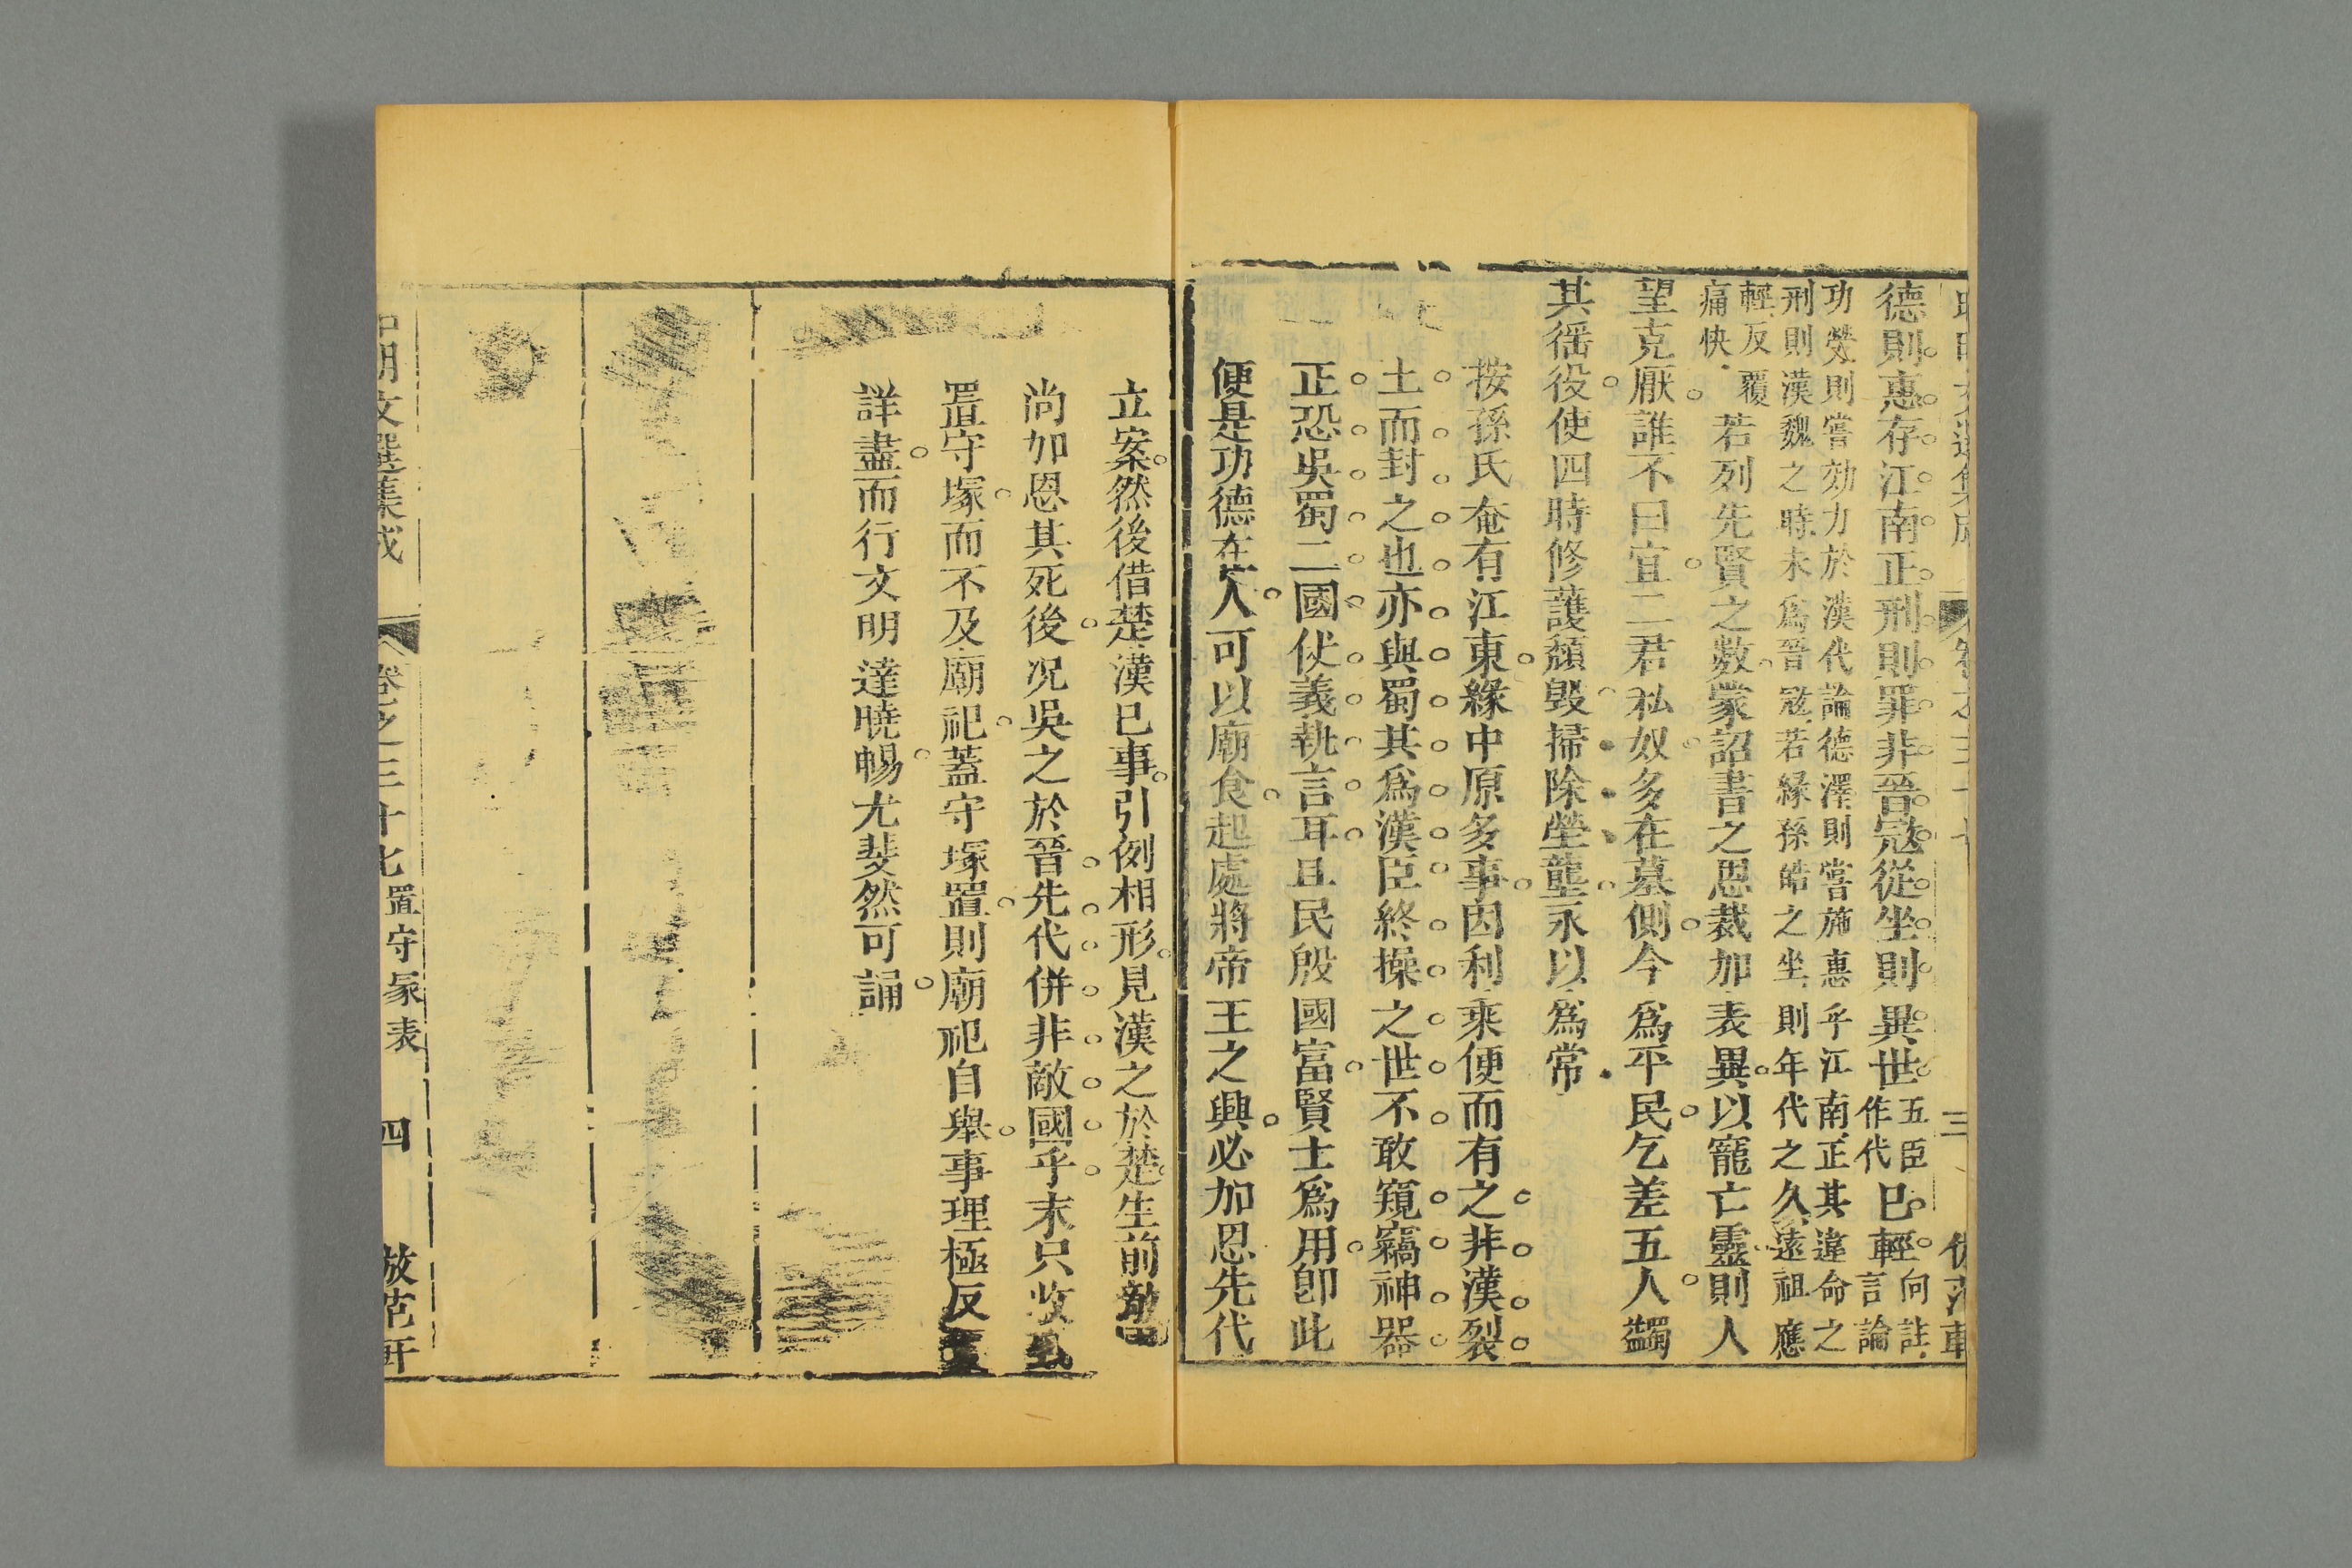 德則惠存江南正刑則罪非晉寇從坐則異世五臣作代已輕向註言論
功勞則嘗効力於漢代論德澤則嘗施惠乎江南正其違命之
刑則漢魏之時未爲晉寇若緣孫皓之坐則年代之久遠祖應
輕反覆
痛快
若列先賢之數蒙詔書之恩裁加表異以寵亡靈則人
望克厭誰不曰宜二君私奴多在墓側今爲平民乞差五人蠲
其徭役使四時修護頹毁掃除塋壟永以爲常
按孫氏奄有江東緣中原多事因利乘便而有之非漢裂
土而封之也亦與蜀其爲漢臣終操之世不敢窺竊神器
正恐吳蜀二國伏義執言耳且民殷國富賢士爲用卽此
便是功德在人可以廟食起處將帝王之興必加恩先代
立案然後借楚漢已事引例相形見漢之於楚生前敵
尚加恩其死後况吳之於晉先代併非敵國乎末只收
置守塚而不及廟祀蓋守塚置則廟祀自舉事理極反覆
詳盡而行文明達曉暢尤斐然可誦
文選集成 卷之三十七 置守冢表 四